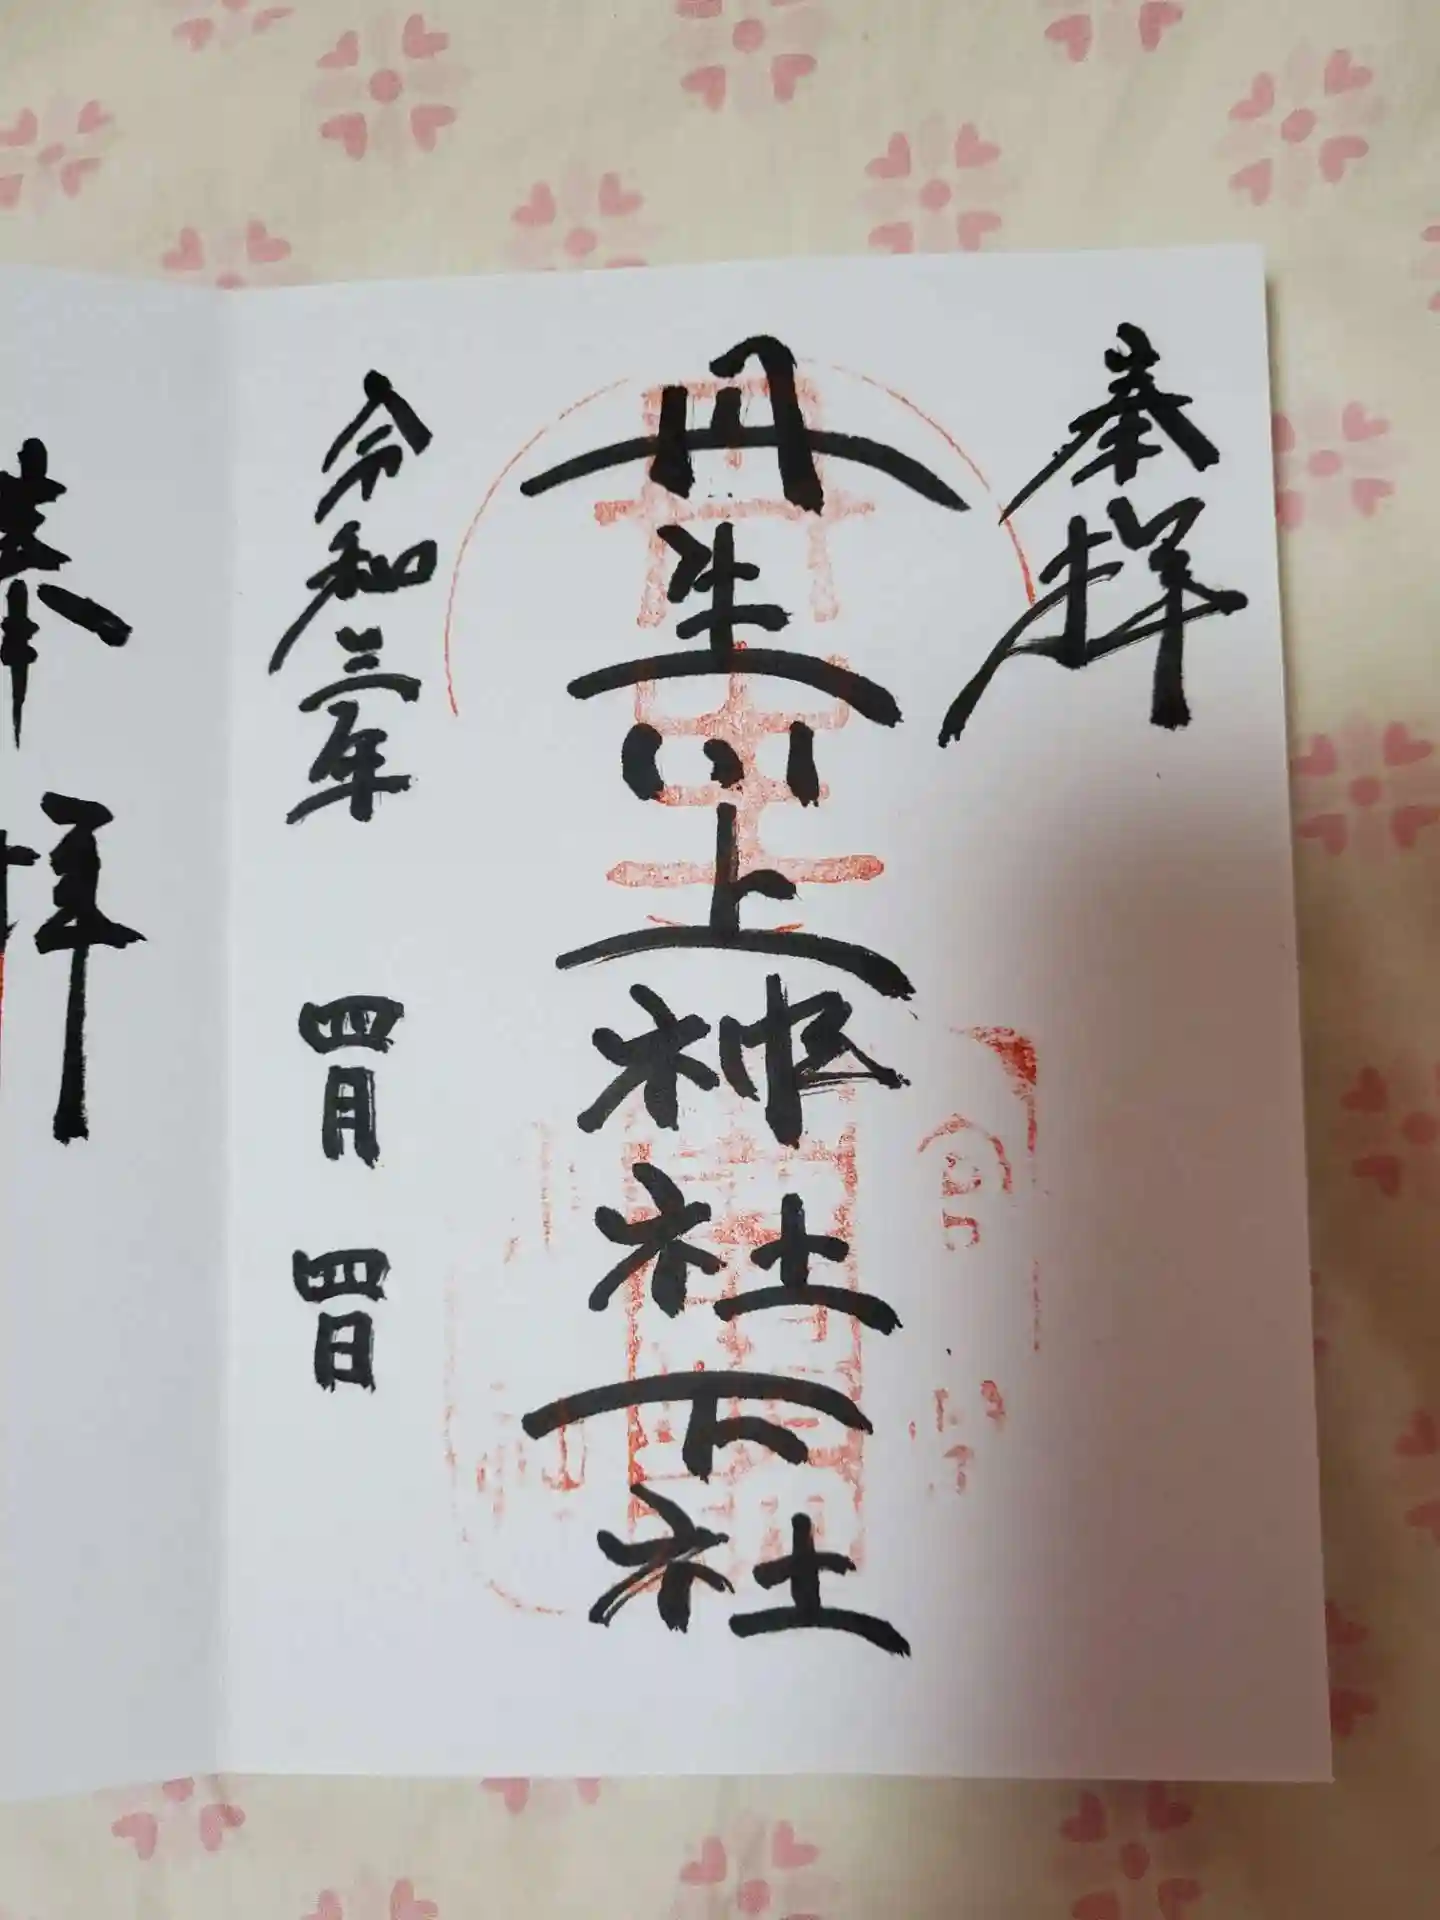 奉拝
丹生川上神社下社
令和三年 四月 四日
奉拝